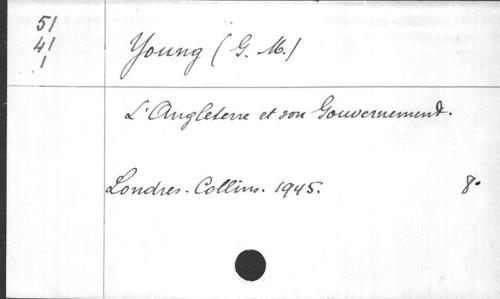 51
41
1
Young (G. M.)
L'Angleterre et son Gouvernement.
Londres. Collins. 1945. 8°